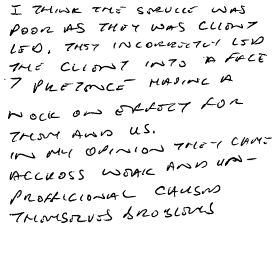 I THINK THE SERVICE WAS
POOR AS THEY WAS CLIENT
LED. THEY INCORRECTLY LED
THE CLIENT INTO A FALCE
PRETENCE HAVING A
NOCK ON EFFECT FOR
THEM AND US.
IN MY OPINION THEY CAME
ACCROSS WEAK AND UN-
PROFFICIONAL CAUSED
THEMSELVES PROBLEMS